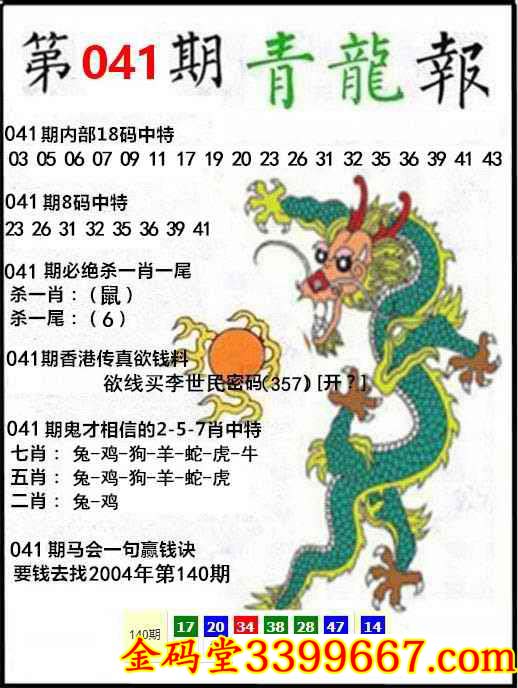 第041期青龍報
041期内部18码中特
03 05 06 07 09 11 17 19 20 23 26 31 32 35 36 39 41 43
041期8码中特
23 26 31 32 35 36 39 41
041期必绝杀一肖一尾
杀一肖：（鼠）
杀一尾：（6）
041期香港传真欲钱料
欲线买李世民密码(357)[开？]
041期鬼才相信的2-5-7肖中特
七肖：兔-鸡-狗-羊-蛇-虎-牛
五肖：兔-鸡-狗-羊-蛇-虎
二肖：兔-鸡
041期马会一句赢钱诀
要钱去找2004年第140期
140期 17 20 34 38 28 47 14
金码堂3399667.com